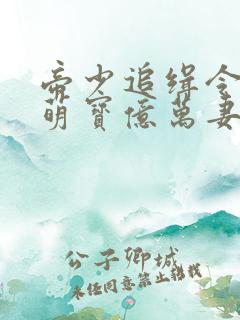 帝少追缉令
萌寳億萬妻
公子卿城
未经同意禁止转载